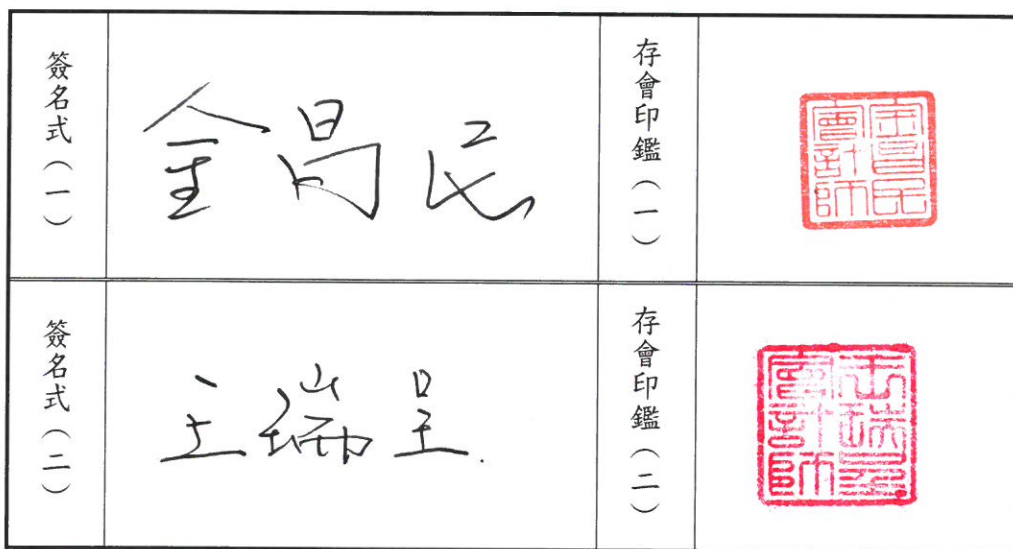 簽名式（一）
金昌民
存會印鑑（一）
金昌民
會計師
簽名式（二）
王瑞呈
存會印鑑（二）
王瑞呈
會計師